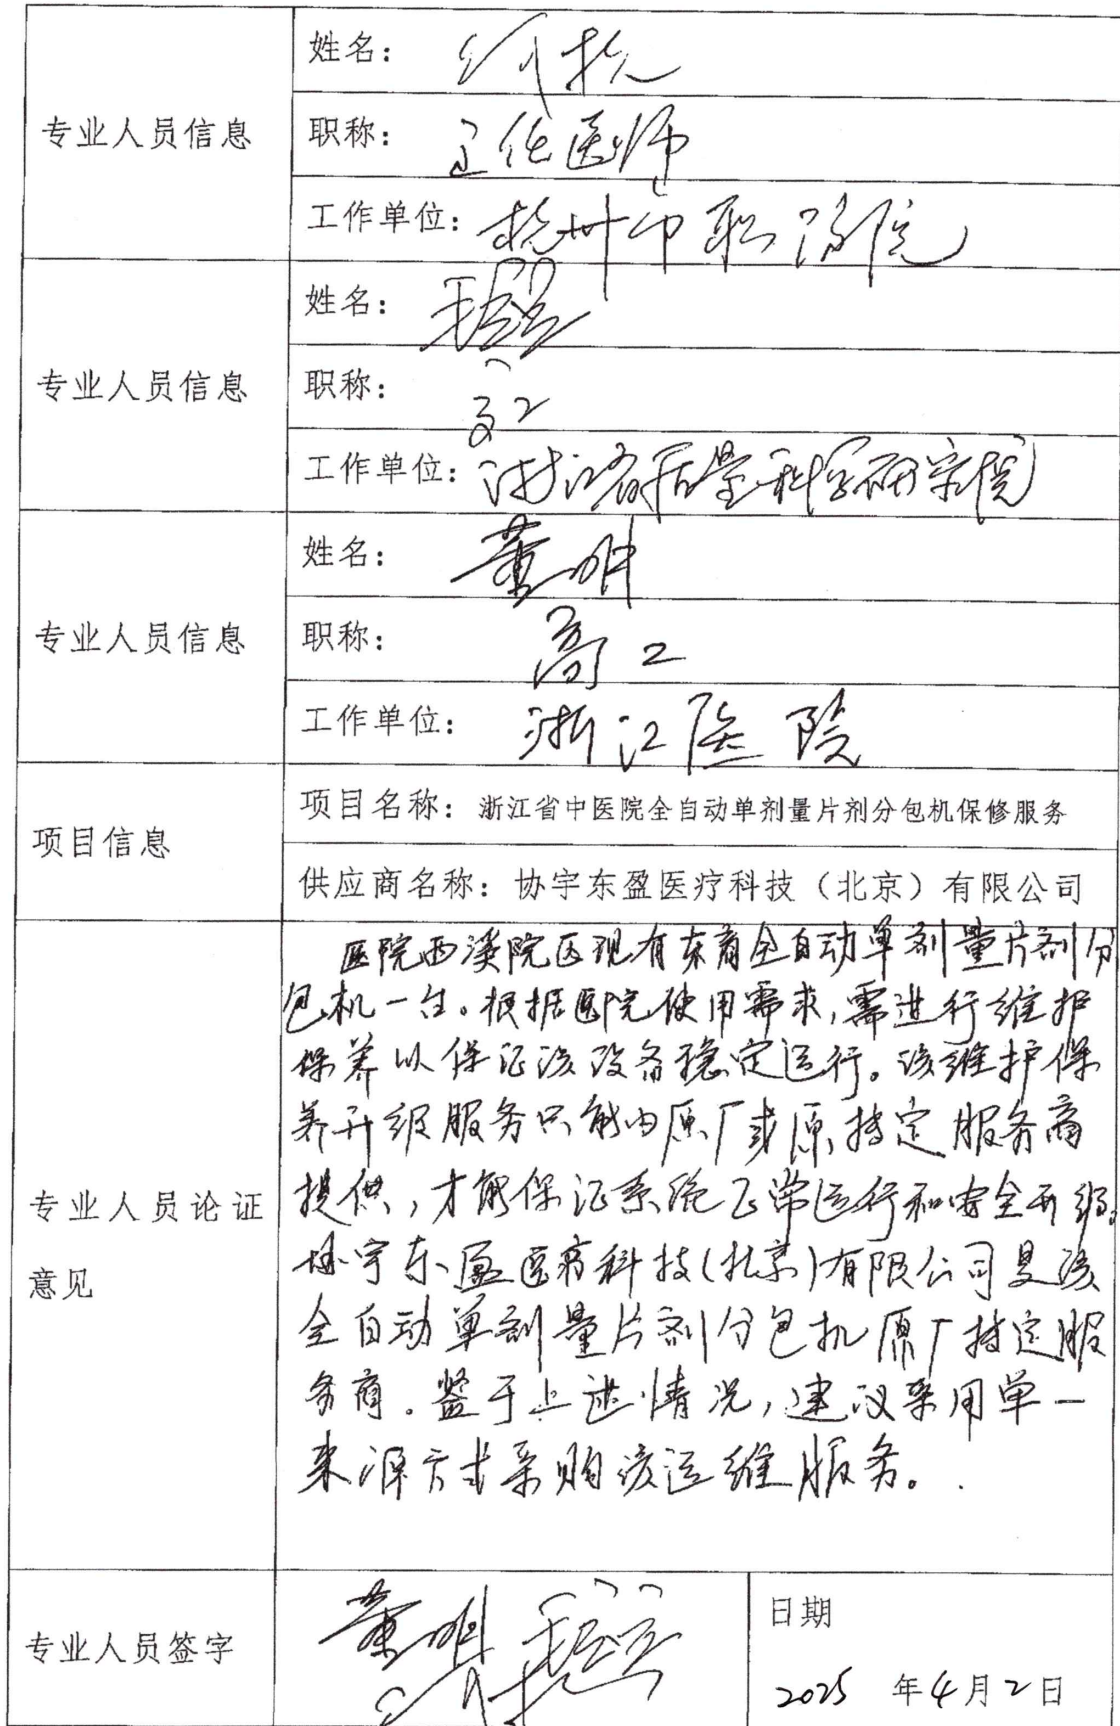 专业人员信息
姓名：
职称：主任医师
工作单位：杭州市职防院
专业人员信息
姓名：
职称：高工
工作单位：浙江省质量科学研究院
专业人员信息
姓名：董明
职称：高工
工作单位：浙江医院
项目信息
项目名称：浙江省中医院全自动单剂量片剂分包机保修服务
供应商名称：协宇东盈医疗科技（北京）有限公司
专业人员论证
意见
医院西溪院区现有东商全自动单剂量片剂分
包机一台。根据医院使用需求，需进行维护
保养以保证该设备稳定运行。该维护保
养升级服务只能由原厂或原特定服务商
提供，才能保证系统正常运行和安全升级。
协宇东盈医疗科技(北京)有限公司是该
全自动单剂量片剂分包机原厂特定服
务商。鉴于上述情况，建议采用单一
来源方式采购该运维服务。
专业人员签字
董明
日期
2025 年4月2日